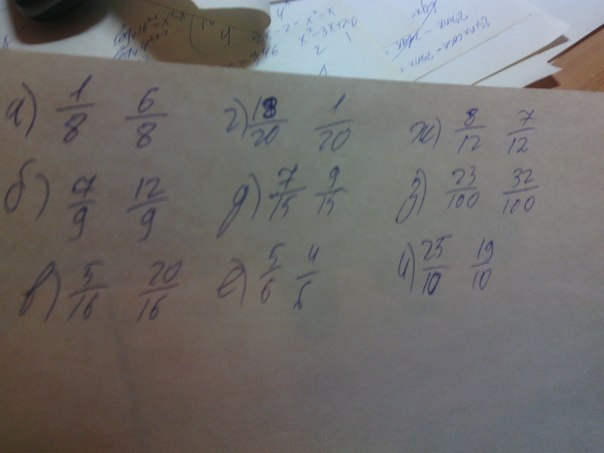 x²-x
x²-3x+20
2
а) 1/8 6/8 г) 18/20 1/20 ж) 8/12 7/12
б) 7/9 12/9 д) 7/15 9/15 з) 23/100 32/100
в) 5/16 20/16 е) 5/6 4/6 и) 25/10 19/10